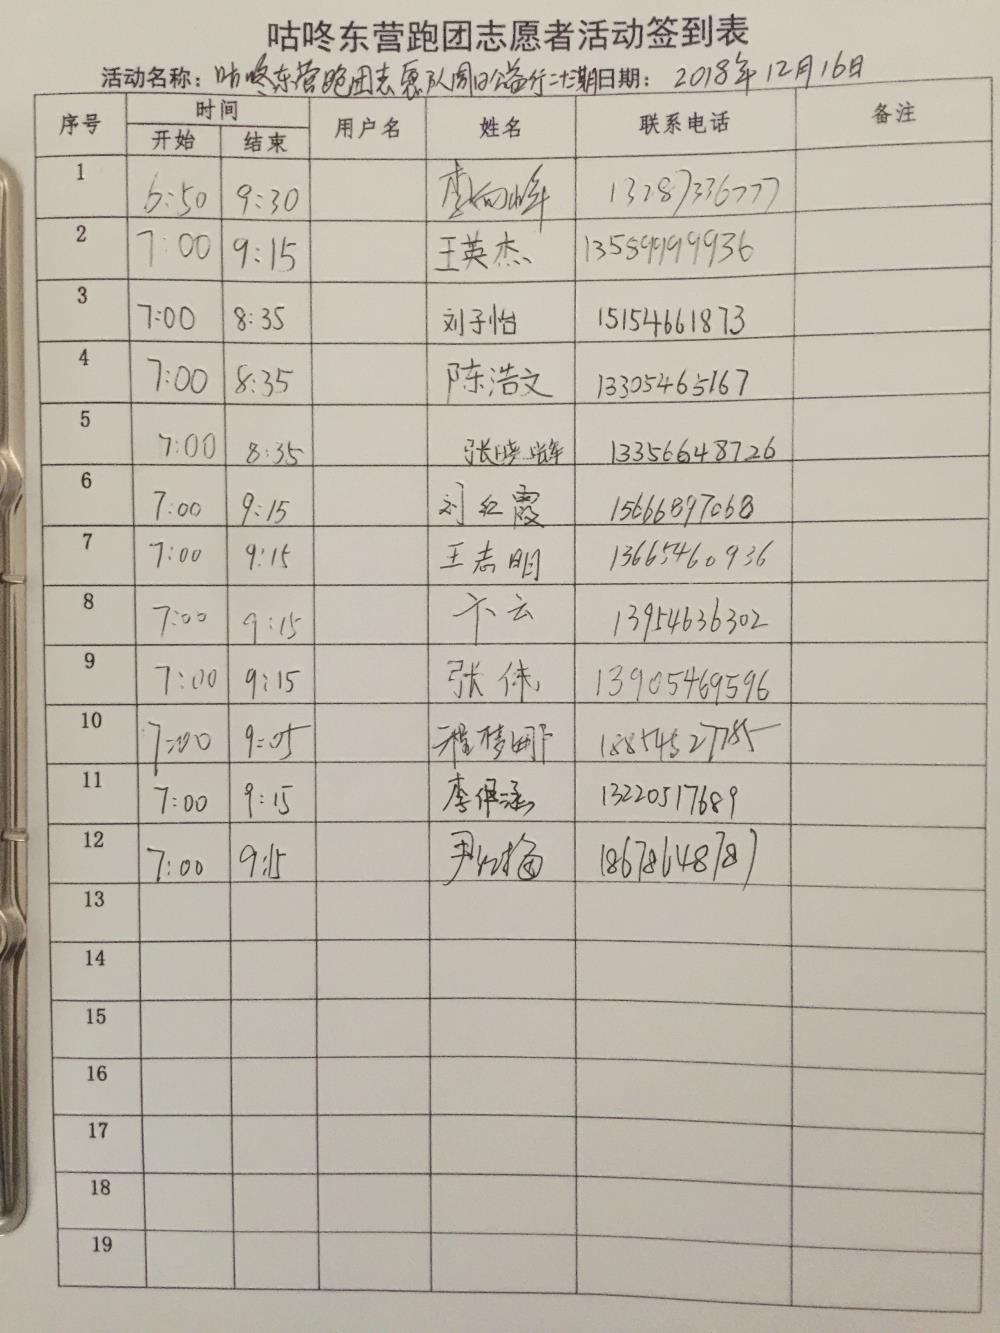 咕咚东营跑团志愿者活动签到表
活动名称：咕咚东营跑团志愿队周日公益行二十三期日期： 2018年12月16日
序号 时间 用户名 姓名 联系电话 备注
开始 结束
1 6:50 9:30 李向峰 13287336777
2 7:00 9:15 王英杰 13589999936
3 7:00 8:35 刘子怡 15154661873
4 7:00 8:35 陈浩文 13305465167
5 7:00 8:35 张晓辉 13356648726
6 7:00 9:15 刘红霞 15666897068
7 7:00 9:15 王志明 13665460936
8 7:00 9:15 卞云 13954636302
9 7:00 9:15 张伟 13905469596
10 7:00 9:05 程梦娜 18854527785
11 7:00 9:15 李保涵 13220517689
12 7:00 9:15 尹红梅 18678648787
13
14
15
16
17
18
19